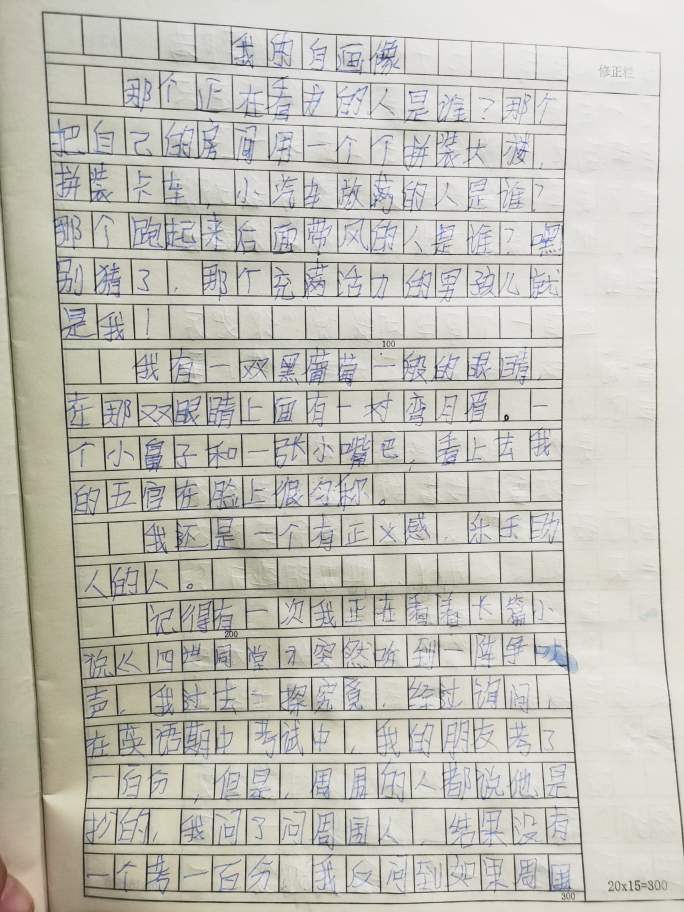 我的自画像
修正栏
那个正在看书的人是谁？那个
把自己的房间用一个个拼装大楼，
拼装卡车，小汽车放满的人是谁？
那个跑起来后面带风的人是谁？嘿
别猜了，那个充满活力的男孩儿就
是我！
100
我有一双黑葡萄一般的眼睛，
在那双眼睛上面有一对弯月眉。一
个小鼻子和一张小嘴巴，看上去我
的五官在脸上很匀称。
我还是一个有正义感，乐于助
人的人。
记得有一次我正在看着长篇小
200
说《四世同堂》突然听到一阵争吵
声，我过去一探究竟，经过询问，
在英语期中考试中，我的朋友考了
一百分，但是，周围的人都说他是
抄的，我问了问周围人，结果没有
一个考一百分，我反问到如果周围
300
20x15=300